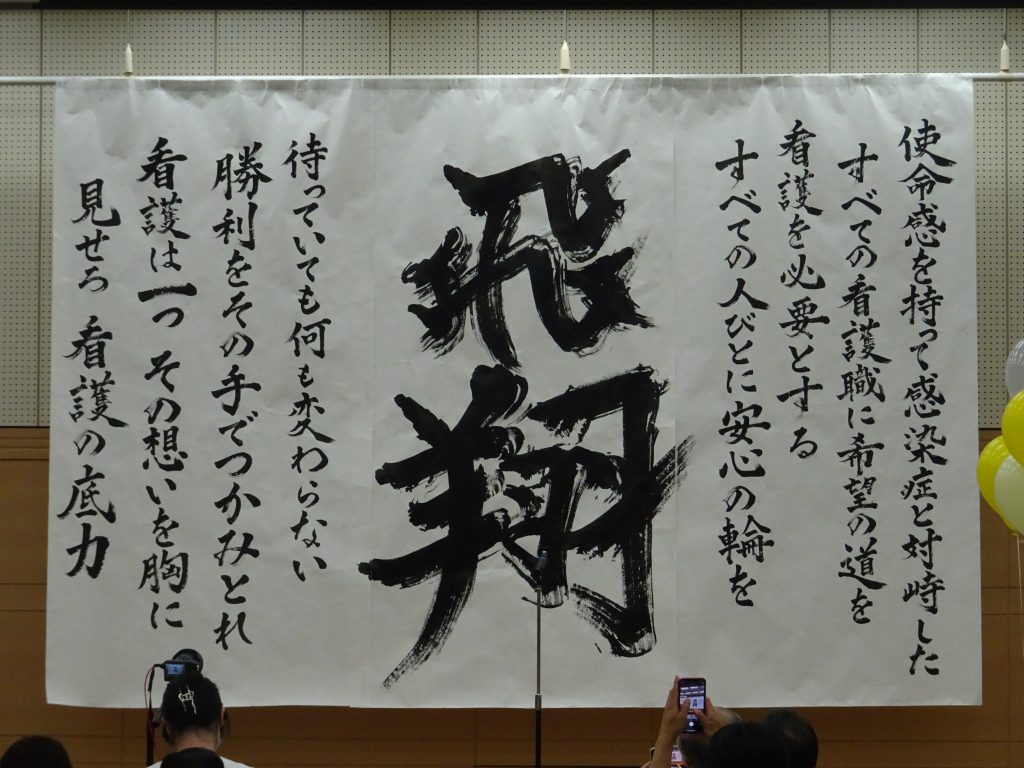 使命感を持って感染症と対峙した
すべての看護職に希望の道を
看護を必要とする
すべての人びとに安心の輪を
飛翔
待っていても何も変わらない
勝利をその手でつかみとれ
看護は一つ その想いを胸に
見せろ 看護の底力